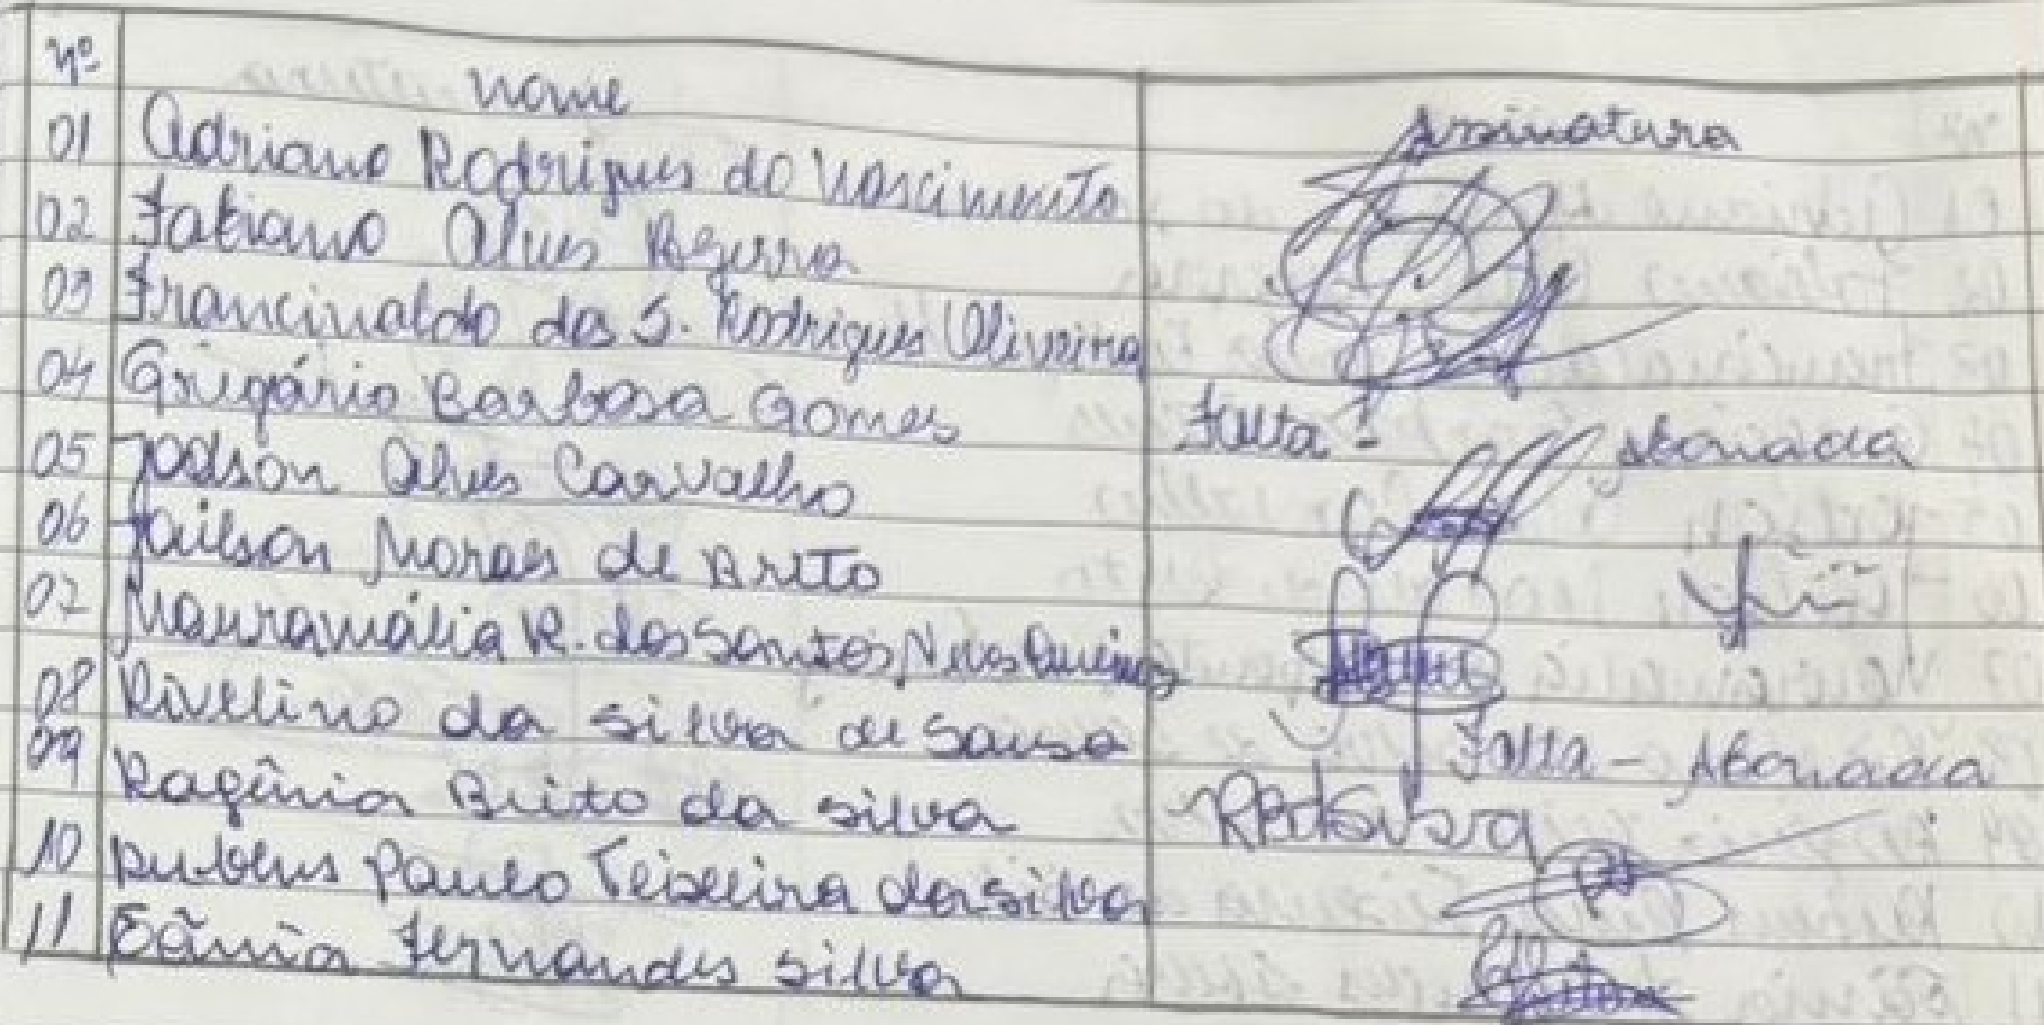 nº nome assinatura
01 Adriano Rodrigues do Nascimento
02 Fabiano Alves Bezerra
03 Francinaldo dos S. Rodrigues Oliveira
04 Grigório Barbosa Gomes Falta - Abonada
05 Jodson Alves Carvalho
06 Jailson Moraes de Brito
07 Mauramália R. dos Santos Neves Queiroz
08 Rivelino da Silva de Sousa Falta - Abonada
09 Ragênia Brito da Silva
10 Rubens Paulo Teixeira da Silva
11 Tânia Fernandes Silva